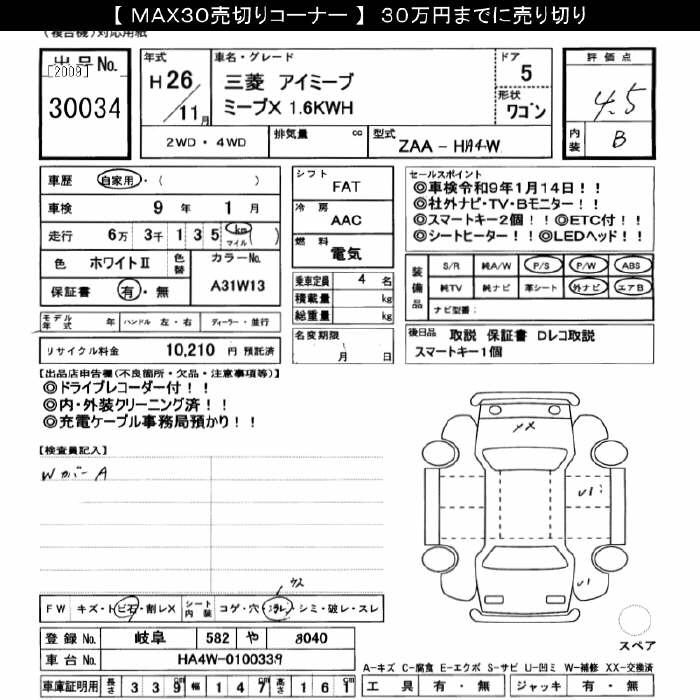 【 MAX30売切りコーナー 】 30万円までに売り切り
(複合機)対応用紙
出品No.
[2009]
30034
年式
H 26/11月
車名・グレード
三菱 アイミーブ
ミーブX 1.6KWH
ドア 5
形状 ワゴン
2WD・4WD 排気量 cc 型式 ZAA - HA4W
評価点
4.5
内装 B
車歴 自家用・( )
車検 9年 1月
走行 6万 3千 1 3 5 km マイル ( )
色 ホワイトⅡ 色替 カラーNo.
保証書 有・無 A31W13
モデル年式 年 ハンドル 左・右 ディーラー・並行
リサイクル料金 10,210 円 預託済
シフト FAT
冷房 AAC
燃料 電気
乗車定員 4 名
積載量 kg
総重量 kg
名変期限 月 日
セールスポイント
◎車検令和9年1月14日！！
◎社外ナビ・TV・Bモニター！！
◎スマートキー2個！！◎ETC付！！
◎シートヒーター！！◎LEDヘッド！！
装備品 S/R 純A/W P/S P/W ABS
純TV 純ナビ 革シート 外ナビ エアB
ナビ型番( )
後日品 取説 保証書 Dレコ取説
スマートキー1個
【出品店申告欄(不良箇所・欠品・注意事項等)】
◎ドライブレコーダー付！！
◎内・外装クリーニング済！！
◎充電ケーブル事務局預かり！！
【検査員記入】
WカバーA
XX
FW キズ・トビ石・割レX シート内装 コゲ・穴・スレ・シミ・破レ・スレ
登録No. 岐阜 582 や 8040
車台No. HA4W-0100339
車庫証明用 長さ 339cm 幅 147cm 高さ 161cm
スペア
A-キズ C-腐食 E-エクボ S-サビ U-凹ミ W-補修 XX-交換済
工具 有・無 ジャッキ 有・無